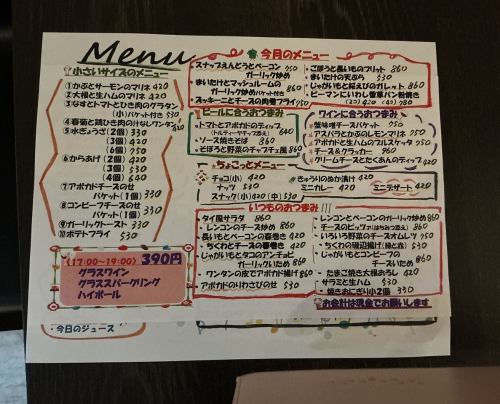 Menu
小さいサイズのメニュー
①かぶとサーモンのマリネ 420
②大根と生ハムのマリネ 420
③なすとトマトとひき肉のグラタン
(小)バケット付き 530
④春菊と鶏ひき肉の汁なしワンタン 420
⑤水ぎょうざ(2個) 330
(4個) 530
(6個) 750
⑥からあげ(2個) 420
(3個) 530
(4個) 640
⑦アボカドチーズのせ
バケット(1個) 330
⑧コンビーフチーズのせ
バケット(1個) 330
⑨ガーリックトースト 330
⑩ポテトフライ 530
(17:00~19:00) 390円
グラスワイン
グラススパークリング
ハイボール
・今日のジュース
今月のメニュー
・スナップえんどうとベーコン 750
ガーリック炒め
・まいたけとマッシュルームの
ガーリック炒めバケット付き 860
・ズッキーニとチーズの肉巻フライ 950
・ごぼうと長いものフリット 860
・まいたけの天ぷら 530
・じゃがいもと桜えびのガレット 860
・ピーマンにいわし香草パン粉焼
(2コ) 420 (4コ) 780
ビールに合うおつまみ
・トマトとアボカドのディップ
(トルティーヤチップ添え) 640
・ソース焼きそば 860
・そぼろと野菜のチャプチェ風 860
ワインに合うおつまみ
・葉味噌チーズバケット 750
・アスパラとかぶのレモンマリネ 750
・アボカドと生ハムのブルスケッタ 750
・チーズ&クラッカー 960
・クリームチーズとたくあんのディップ 420
ちょこっとメニュー
・チョコ(小) 420
ナッツ 530
スナック(小) 420 (中) 530
・きゅうりのぬか漬け 420
ミニカレー 420
ミニデザート 420
いつものおつまみ!!!
・タイ風サラダ 860
・レンコンのチーズ炒め 860
・長いもとベーコンの春巻き 420
・ちくわとチーズの春巻き 420
・じゃがいもとタコのアンチョビ
ガーリックいため 860
・ワンタンの皮でアボカド揚げ 860
・アボカドのりわさびのせ 530
・レンコンとベーコンのガーリック炒め 860
・チーズのピッツァ(はちみつ添え) 860
・いろいろ野菜のチーズオムレツ 750
・ちくわの磯辺揚げ(梅と赤) 530
・じゃがいもとコンビーフの
チーズいため 860
・たまご焼き大根おろし 420
・サラミと生ハム 530
・焼きおにぎり小2個 330
お会計は現金でお願いします